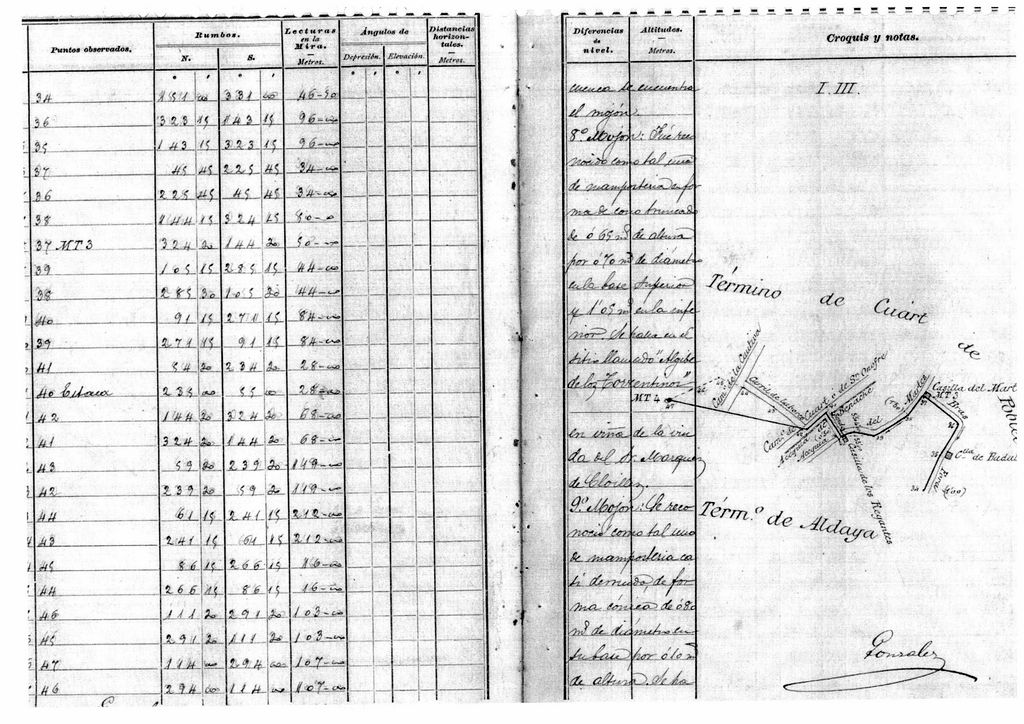 Puntos observados. Rumbos. Lecturas en la Mira. Ángulos de Distancias horizontales.
N. S. Metros. Depresión. Elevación. Metros.
34 151 00 331 00 46-50
36 323 15 143 15 96-00
35 143 15 323 15 96-00
37 45 45 225 45 34-00
36 225 45 45 45 34-00
38 144 15 324 15 50-0
37 MT3 324 20 144 20 50-00
39 105 15 285 15 44-00
38 285 20 105 20 44-00
40 91 15 271 15 84-00
39 271 15 91 15 84-00
41 54 20 234 20 28-00
40 235 00 55 00 28-00
42 144 20 324 20 68-00
41 324 20 144 20 68-00
43 59 20 239 20 149-00
42 239 20 59 20 149-00
44 61 15 241 15 212-00
43 241 15 61 15 212-00
45 86 15 266 15 16-00
44 266 15 86 15 16-00
46 111 20 291 20 103-00
45 291 20 111 20 103-00
47 114 00 294 00 107-00
46 294 00 114 00 107-00
Diferencias de nivel. Altitudes. Metros. Croquis y notas.
cuenca se encuentra
el mojón.
8º Mojón: Fué reco
nocido como tal uno
de mampostería en for
ma de cono truncado
de 0'65 m. de altura
por 0'70 m. de diámetro
en la base superior
y 1'05 m. en la infe
rior. Se halla en el
sitio llamado "Algibe
de los Torrentinos"
en viña de la viu
da del Sr. Marques
de
9º Mojón: Se reco
noció como tal uno
de mampostería ca
si derruido, de for
ma cónica de 0'80
m. de diámetro en
su base por 0'10 m
de altura. Se ha
I. III.
Término de Cuart de Poble
Cam.º de la
Cam.º de Cuart
Acequia
MT 4
47
Casilla del Mart
MT 3
Casilla de los Regantes
C.lla de Badal
34
Térm.º de Aldaya
Gonzalez